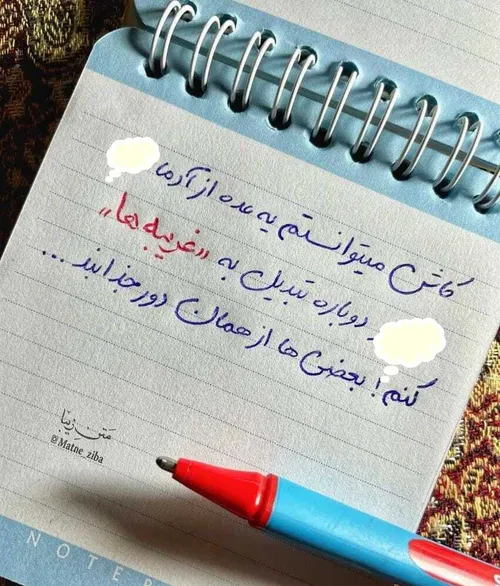 کاش میتوانستم یه عده از آدما
دوباره تبدیل به «غریبه ها»
کنم! بعضی ها از همان دور جذابند ...
متن زیبا
@Matne_ziba
NOTE